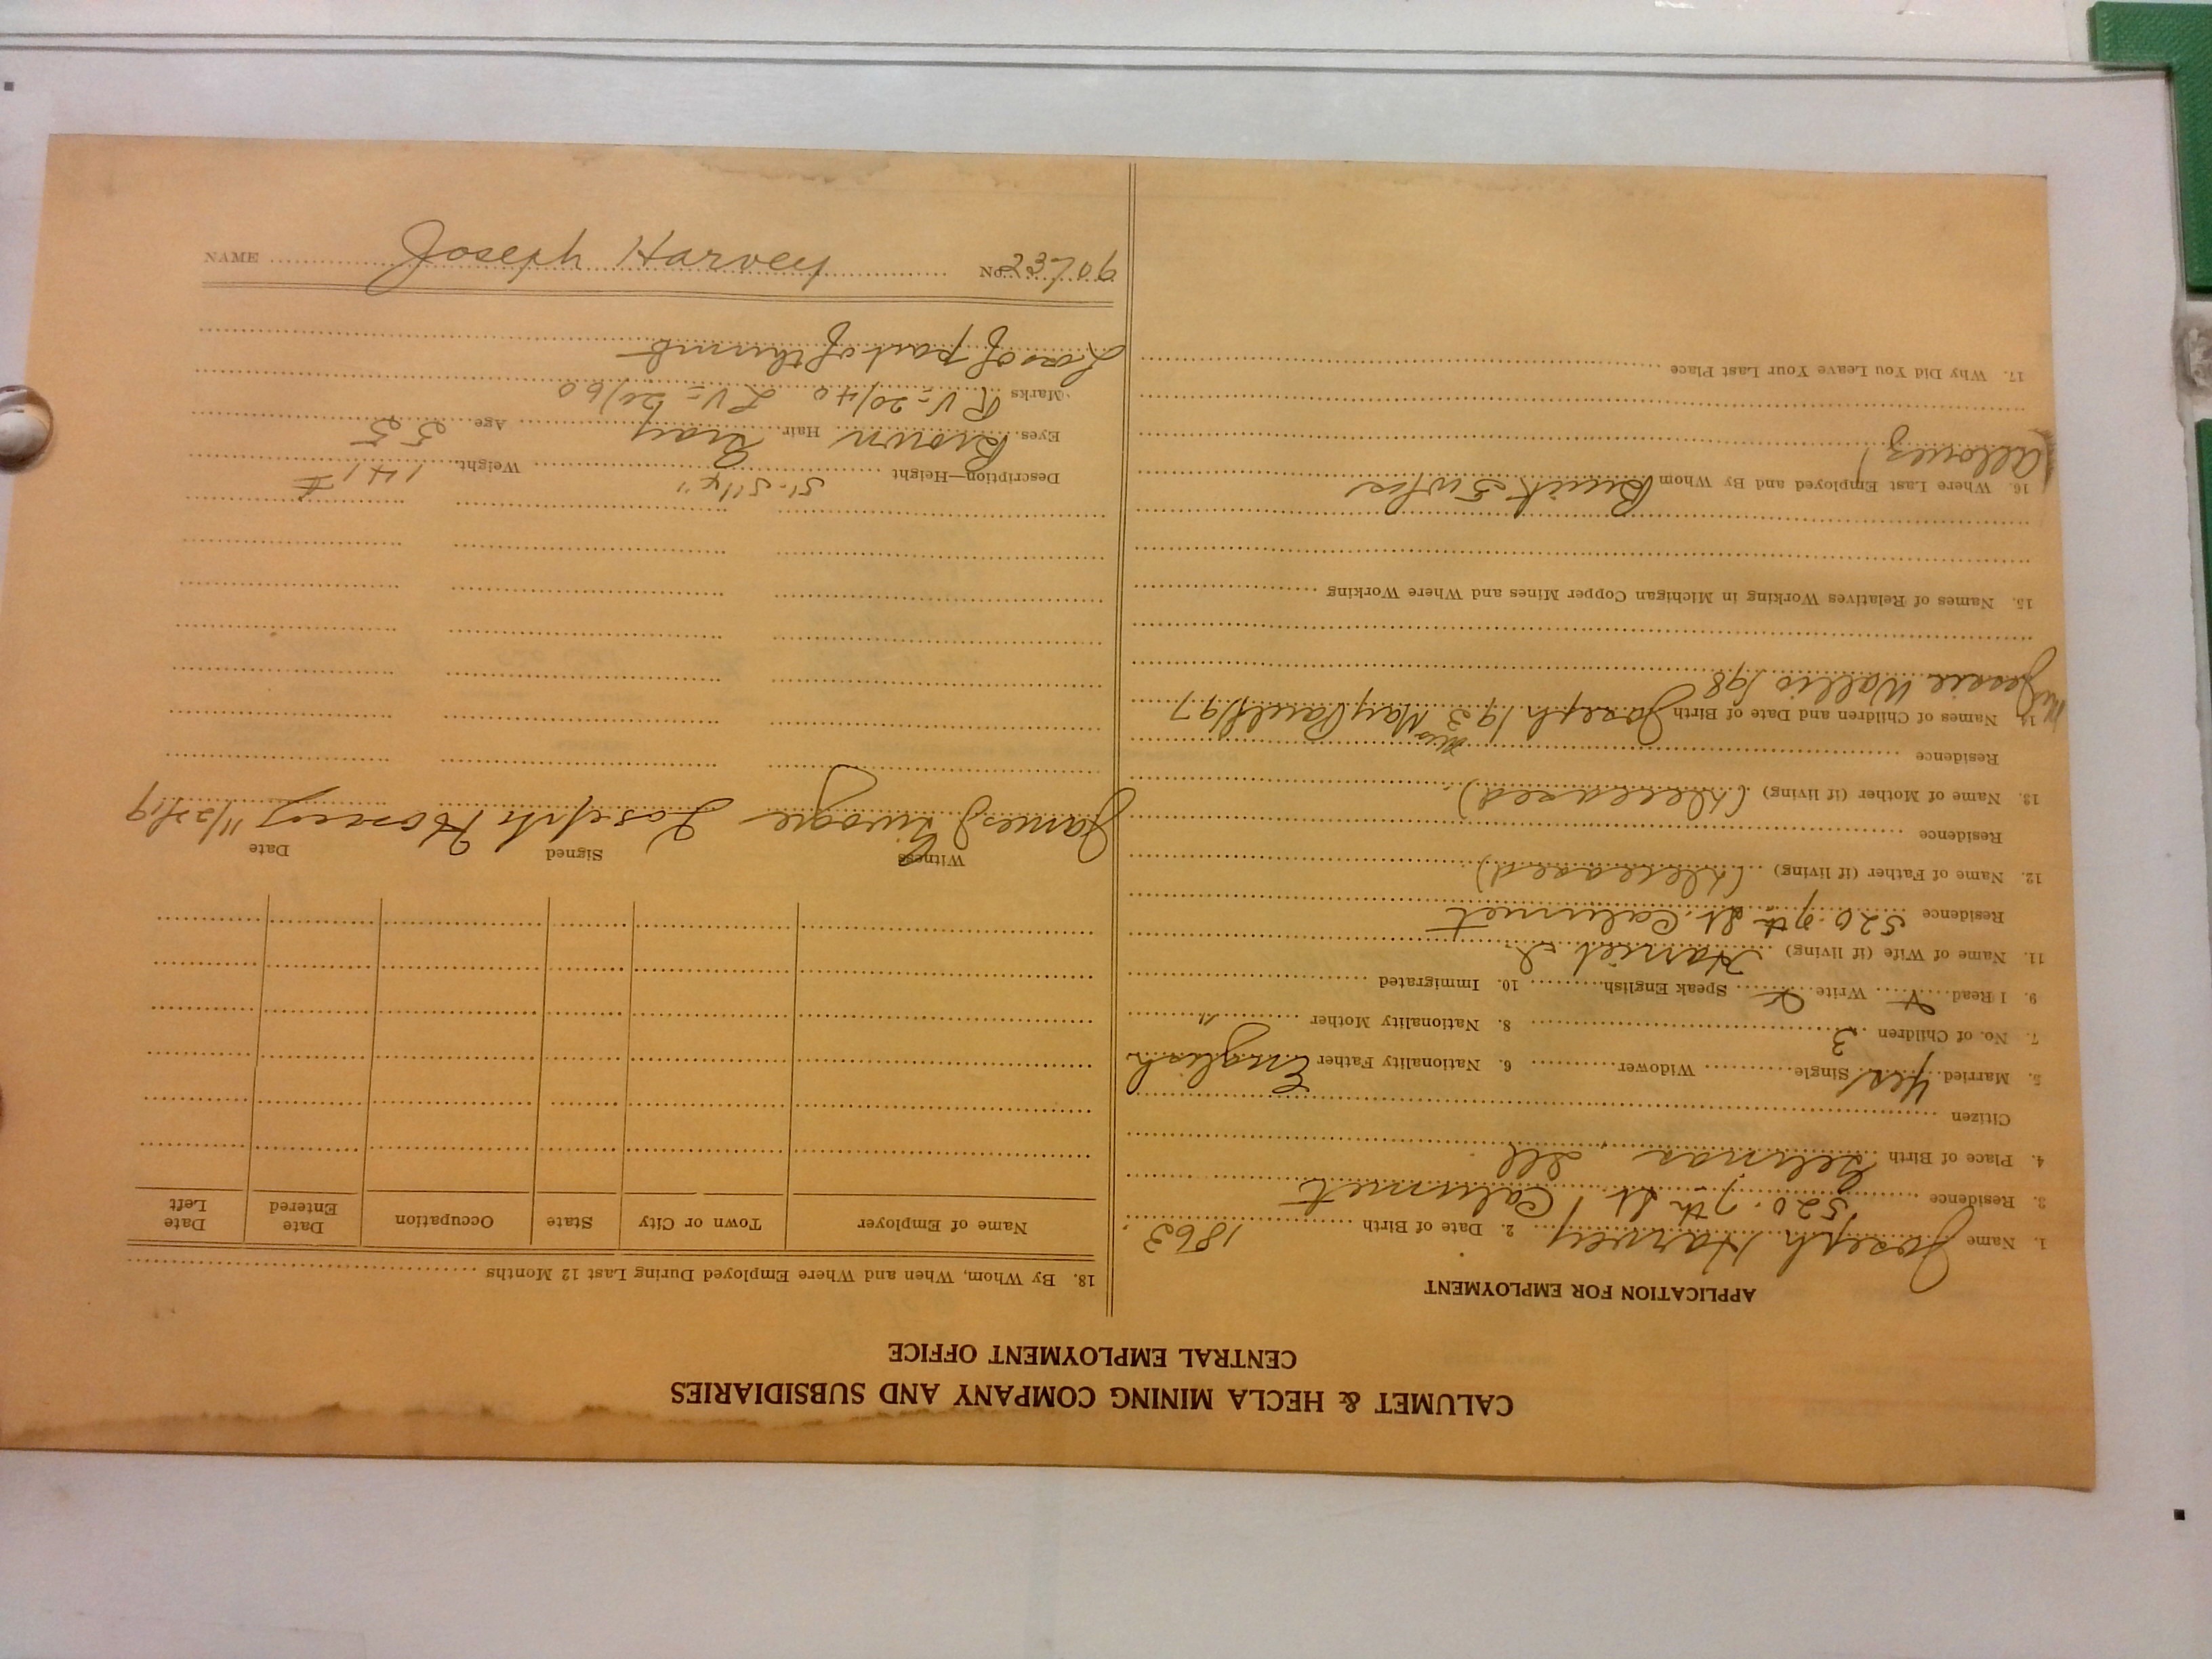 CALUMET & HECLA MINING COMPANY AND SUBSIDIARIES
CENTRAL EMPLOYMENT OFFICE
APPLICATION FOR EMPLOYMENT
1. Name Joseph Harvey 2. Date of Birth 1863.
3. Residence 520. 7th St. Calumet
4. Place of Birth Ill
Citizen
5. Married Yes Single Widower 6. Nationality Father English
7. No. of Children 3 8. Nationality Mother "
9. I Read Write Speak English 10. Immigrated
11. Name of Wife (if living) Harriet
Residence 520. 7th St. Calumet
12. Name of Father (if living) (deceased)
Residence
13. Name of Mother (if living) (deceased)
Residence
14. Names of Children and Date of Birth Joseph /93 Mrs May /97
Mrs Jessie Wallis /98
15. Names of Relatives Working in Michigan Copper Mines and Where Working
16. Where Last Employed and By Whom
(Allouez)
17. Why Did You Leave Your Last Place
18. By Whom, When and Where Employed During Last 12 Months
Name of Employer Town or City State Occupation Date Entered Date Left
Witness Signed Date
James Joseph Harvey 11/22/19
Description—Height 5'-5 1/4" Weight 141 #
Eyes Brown Hair Gray Age 55
Marks R V=20/40 L V=20/60
Loss of part of thumb
NAME Joseph Harvey NO. 23709